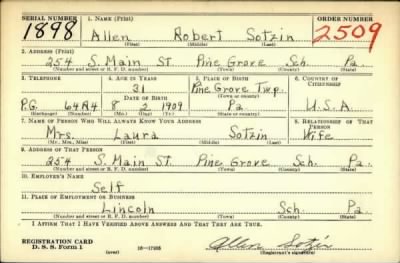 SERIAL NUMBER 1. NAME (Print) ORDER NUMBER
1898 Allen Robert Sotzin 2509
(First) (Middle) (Last)
2. ADDRESS (Print)
254 S. Main St. Pine Grove Sch. Pa.
(Number and street or R. F. D. number) (Town) (County) (State)
3. TELEPHONE 4. AGE IN YEARS 5. PLACE OF BIRTH 6. COUNTRY OF CITIZENSHIP
31 Pine Grove Twp.
DATE OF BIRTH (Town or county)
P.G. 64R4 8 2 1909 Pa U.S.A.
(Exchange) (Number) (Mo.) (Day) (Yr.) (State or country)
7. NAME OF PERSON WHO WILL ALWAYS KNOW YOUR ADDRESS 8. RELATIONSHIP OF THAT PERSON
Mrs. Laura Sotzin Wife
(Mr., Mrs., Miss) (First) (Middle) (Last)
9. ADDRESS OF THAT PERSON
254 S. Main St. Pine Grove Sch. Pa.
(Number and street or R. F. D. number) (Town) (County) (State)
10. EMPLOYER'S NAME
Self
11. PLACE OF EMPLOYMENT OR BUSINESS
Lincoln Sch. Pa.
(Number and street or R. F. D. number) (Town) (County) (State)
I AFFIRM THAT I HAVE VERIFIED ABOVE ANSWERS AND THAT THEY ARE TRUE.
REGISTRATION CARD
D. S. S. Form 1 (over) 16—17105 Allen Sotzin
(Registrant's signature)